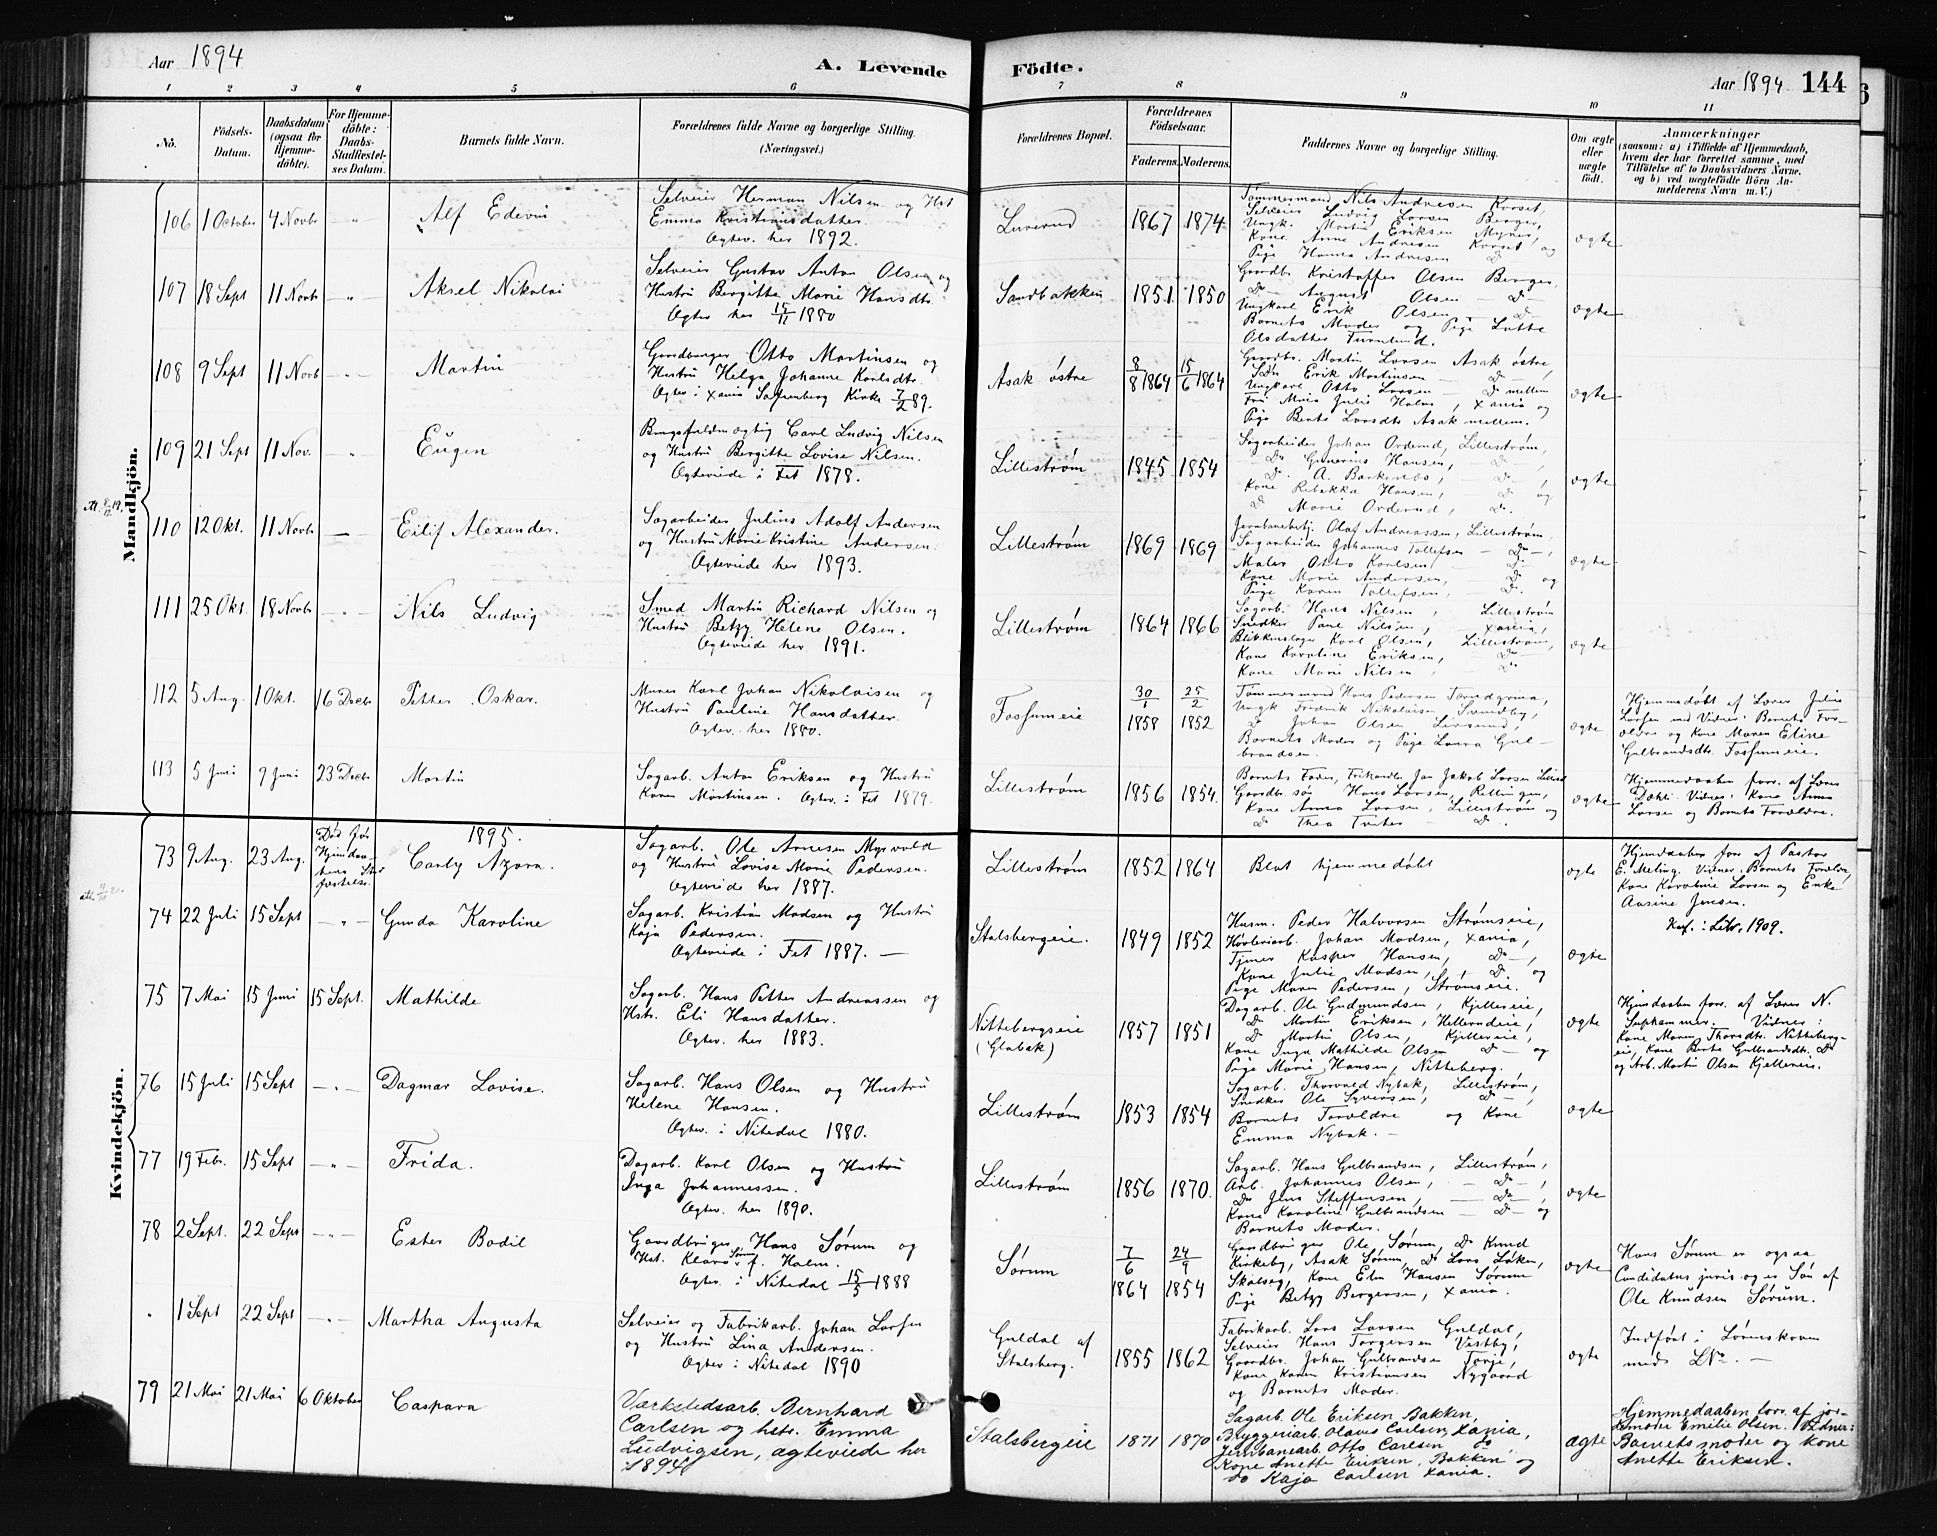 Aar 1894
A. Levende
Födte.
Aar 1894 144
1 2 3 4 5 6 7 8 9 10 11
No.
Födsels-Datum.
Daabsdatum (ogsaa for Hjemme-döbte).
For Hjemme-döbte: Daabs-Stadfæstel-ses Datum.
Barnets fulde Navn.
Forældrenes fulde Navne og borgerlige Stilling. (Næringsvei.)
Forældrenes Bopæl.
Forældrenes Födselsaar.
Faderens. Moderens.
Faddernes Navne og borgerlige Stilling.
Om ægte eller uægte født.
Anmærkninger (saasom: a) i Tilfælde af Hjemmedaab, hvem der har forrettet samme, med Tilföielse af to Daabsvidners Navne. og b) ved uægtefödte Börn An-melderens Navn m. V.)
Mandkjön.
106 1 October 4 Novbr - " Alf Edevin
Selveier Herman Nilsen og Hst
Emma Kristiansdatter.
Ægtev. her 1892.
Lurerud 1867 1874
Tømmermand Nils Andresen Korset,
Selveier Ludvig Larsen Berger,
Ungk. Martin Eriksen Myrer,
Kone Anne Andresen Korset og
Pige Hanna Andresen D
ægte
107 18 Sept 11 Novbr - " - Aksel Nikolai
Selveier Gustav Anton Olsen og
Hustru Bergitte Marie Hansdtr.
Ægtev her 15/11 1880
Sandbakken 1851. 1850
Gaardbr Kristoffer Olsen Berger,
Do August Olsen D-
Ungkarl Erik Olsen D-
Barnets Moder og Pige Lotte
Olsdatter
ægte
108 9 Sept 11 Novb - " - Martin
Gaardbruger Otto Martinsen og
Hustru Helga Johanne Karlsdtr.
Ægtev. i Xania Kirke 7/2 89.
Asak østre 8/8 1864 15/6 1864
Gaardbr. Martin Larsen Asak østre,
Sdn Erik Martinsen - D -,
Ungkarl Otto Larsen - D mellem
Fru Marie Julie Holm, Xania og
Pige Berte Larsdtr Asak mellem.
ægte
109 21 Sept 11 Nov. " Eugen
Brugsfuldmægtig Carl Ludvig Nilsen
og Hustru Bergitte Lovise Nilsen.
Ægteviede i Fet 1878.
Lillestrøm 1845 1854
Sagarbeider Johan Orderud, Lillestrøm,
Do Gunerius Hansen, D ,
D. A. Barkenæs, - D - ,
Kone Rebekka Hansen, - D og
D Marie Orderud, D.
ægte
110 12 Okt. 11 Novbr — Eilif Alexander.
Sagarbeider Julius Adolf Andersen
og Hustru Marie Kristine Andersen.
Ægteviede her 1893.
Lillestrøm 1869 1869
Jernbanebetj. Olaf Andreassen, Lillestrøm,
Sagarbeider Johannes Tollefsen - D -,
Maler Otto Karlsen D
Kone Marie Andersen, - D og
Pige Karen Tollefsen, - D.
ægte
111 25 Okt. 18 Novbr - " - Nils Ludvig
Smed Martin Richard Nilsen og
Hustru Betzy Helene Olsen.
Ægteviede her 1891.
Lillestrøm 1864 1866
Sagarb. Hans Nilsen, Lillestrøm
Snedker Nilsen, Xania,
Blikkenslager Karl Olsen, Lillestrøm,
Kone Karoline Eriksen, -D-
Kone Marie Nilsen, Do
ægte
112 5 Aug. 1 Okt. 16 Decbr Petter Oskar.
Murer Karl Johan Nikolaisen og
Hustru Pauline Hansdatter.
Ægtev. her 1880.
Fosfumeie 30/1 1858 25/2 1852
Tømmermand Hans Pedersen
Ungk Fredrik Nikolaisen
D Johan Olsen
Barnets Moder og Pige Laura Gul-
brandsen.
ægte
Hjemmedøbt af Lærer Julius
Larsen med Vidner: Barnets For-
ældre og Kone Maren Eline
Gulbrandsdtr. Fosfumeie.
113 5 Juni 9 Juni 23 Decbr Martin
Sagarb. Anton Eriksen og Hustru
Karen Martinsen. Ægtev. i Fet 1879.
Lillestrøm 1856 1854.
Barnets Fader, Jan Jakob Larsen
Gaardbr. søn Hans Larsen, Rellingen,
Kone Anna Larsen, Lillestrøm og
D Thea - D -.
ægte
Hjemmedaaben forr. af Lærer
Dæhli. Vidner: Kone Anna
Larsen og Barnets Forældre.
Kvindekjön.
1895.
73 9 Aug. 23 Aug. Død før
Hjemdaa-
bens Stad-
fæstelse. Carly Azora.
Sagarb. Ole Arnesen Myrvold
og Hustru Lovise Marie Pedersen.
Ægteviede her 1887.
Lillestrøm 1852 1864 Blot hjemmedøbt ægte
Hjemdaaben forr. af Pastor
E. Meling. Vidner: Barnets Forældre,
Kone Karoline Larsen og Enke
Aasine Jensen.
74 22 Juli 15 Sept - " - Gunda Karoline
Sagarb. Kristian Madsen og Hustru
Kaja Pedersen.
Ægteviede i Fet 1887. —
Stalsbergeie. 1849 1852
Husm. Peder Halvorsen Strømseie,
Johan Madsen, Xania,
Tjener Kasper Hansen, D -,
Kone Julie Madsen, D. og
Pige Maren Pedersen, Strømseie.
ægte
Kuf. i Litr. 1909.
75 7 Mai 15 Juni 15 Sept. Mathilde
Sagarb. Hans Petter Andreassen og
Hstr. Eli Hansdatter.
Ægtev. her 1883.
Nittebergseie
(Glabak) 1857 1851
Dagarb. Ole Gudmundsen, Kjellereie,
D Martin Eriksen, Hellerudeie,
D Martin Olsen, Kjellereie,
Kone Inga Mathilde Olsen D - og
Pige Marie Hansen, Nitteberg.
ægte
Hjemdaaben forr. af Lærer N.
Suphammer. Vidner:
Kone Maren Thorsdtr. Nitteberg-
eie, Kone Berte Gulbrandsdtr. Do
og Arb. Martin Olsen Kjellereie.
76 15 Juli 15 Sept - " - Dagmar Lovise.
Sagarb. Hans Olsen og Hustru
Helene Hansen.
Ægtev. i Nitedal 1880.
Lillestrøm 1853 1854
Sagarb. Thorvald Nybak, Lillestrøm,
Snedker Ole Syversen, D -,
Barnets Forældre og Kone
Emma Nybak. -
ægte
77 19 Febr. 15 Sept - " - Frida.
Dagarb. Karl Olsen og Hustru
Inga Johannessen.
Ægtev. her 1890.
Lillestrøm 1856 1870.
Sagarb. Hans Gulbrandsen, Lillestrøm,
Arb. Johannes Olsen, - D -,
Do Jens Steffensen, - D -,
Kone Karoline Gulbrandsen - D - og
Barnets Moder.
ægte
78 2 Sept. 22 Sept - " - Ester Bodil
Gaardbruger Hans Sørum og
Hst. Klara Sørum f. Holm.
Ægtev. i Nitedal 15/5 1888
Sørum 7/6 1864 24/9 1854
Gaardbruger Ole Sørum, Do Knud
Kirkeby, Asak Sørum, Do Lars Løken,
Skalseg, Kone Elen Hansen Sørum
Pige Betzy Bergersen, Xania.
ægte
Hans Sørum er ogsaa
Candidatus juris og er Søn af
Ole Knudsen Sørum.
" 1 Sept 22 Sept - " - Martha Augusta
Selveier og Fabrikarb. Johan Larsen
og Hustru Lina Andersen.
Ægtev i Nitedal 1890
Guldal af
Stalsberg. 1855 1862
Fabrikarb. Lars Larsen Guldal,
Selveier Hans Torgersen Vestby,
Gaardbr. Johan Gulbrandsen Torje,
Kone Karen Kristiansen Nygaard
og Barnets Moder.
ægte
Indført i Lørenskoven
meds LNo. —
79 21 Mai 21 Mai 6 Oktober Caspara
Værkstedsarb. Bernhard
Carlsen og hstr. Emma
Ludvigsen, ægteviede her
1894
Stalsbergeie 1871 1870
Sagarb. Ole Eriksen Bakken,
Bryggeriarb. Olaves Carlsen, Xania,
Jernbanearb. Otto Carlsen do
Kone Anette Eriksen, Bakken og
do Kaja Carlsen Xania.
ægte
Hjemmedaaben forr. af jor-
demoder Emilie Olsen. Vidner:
Barnets moder og kone
Anette Eriksen.